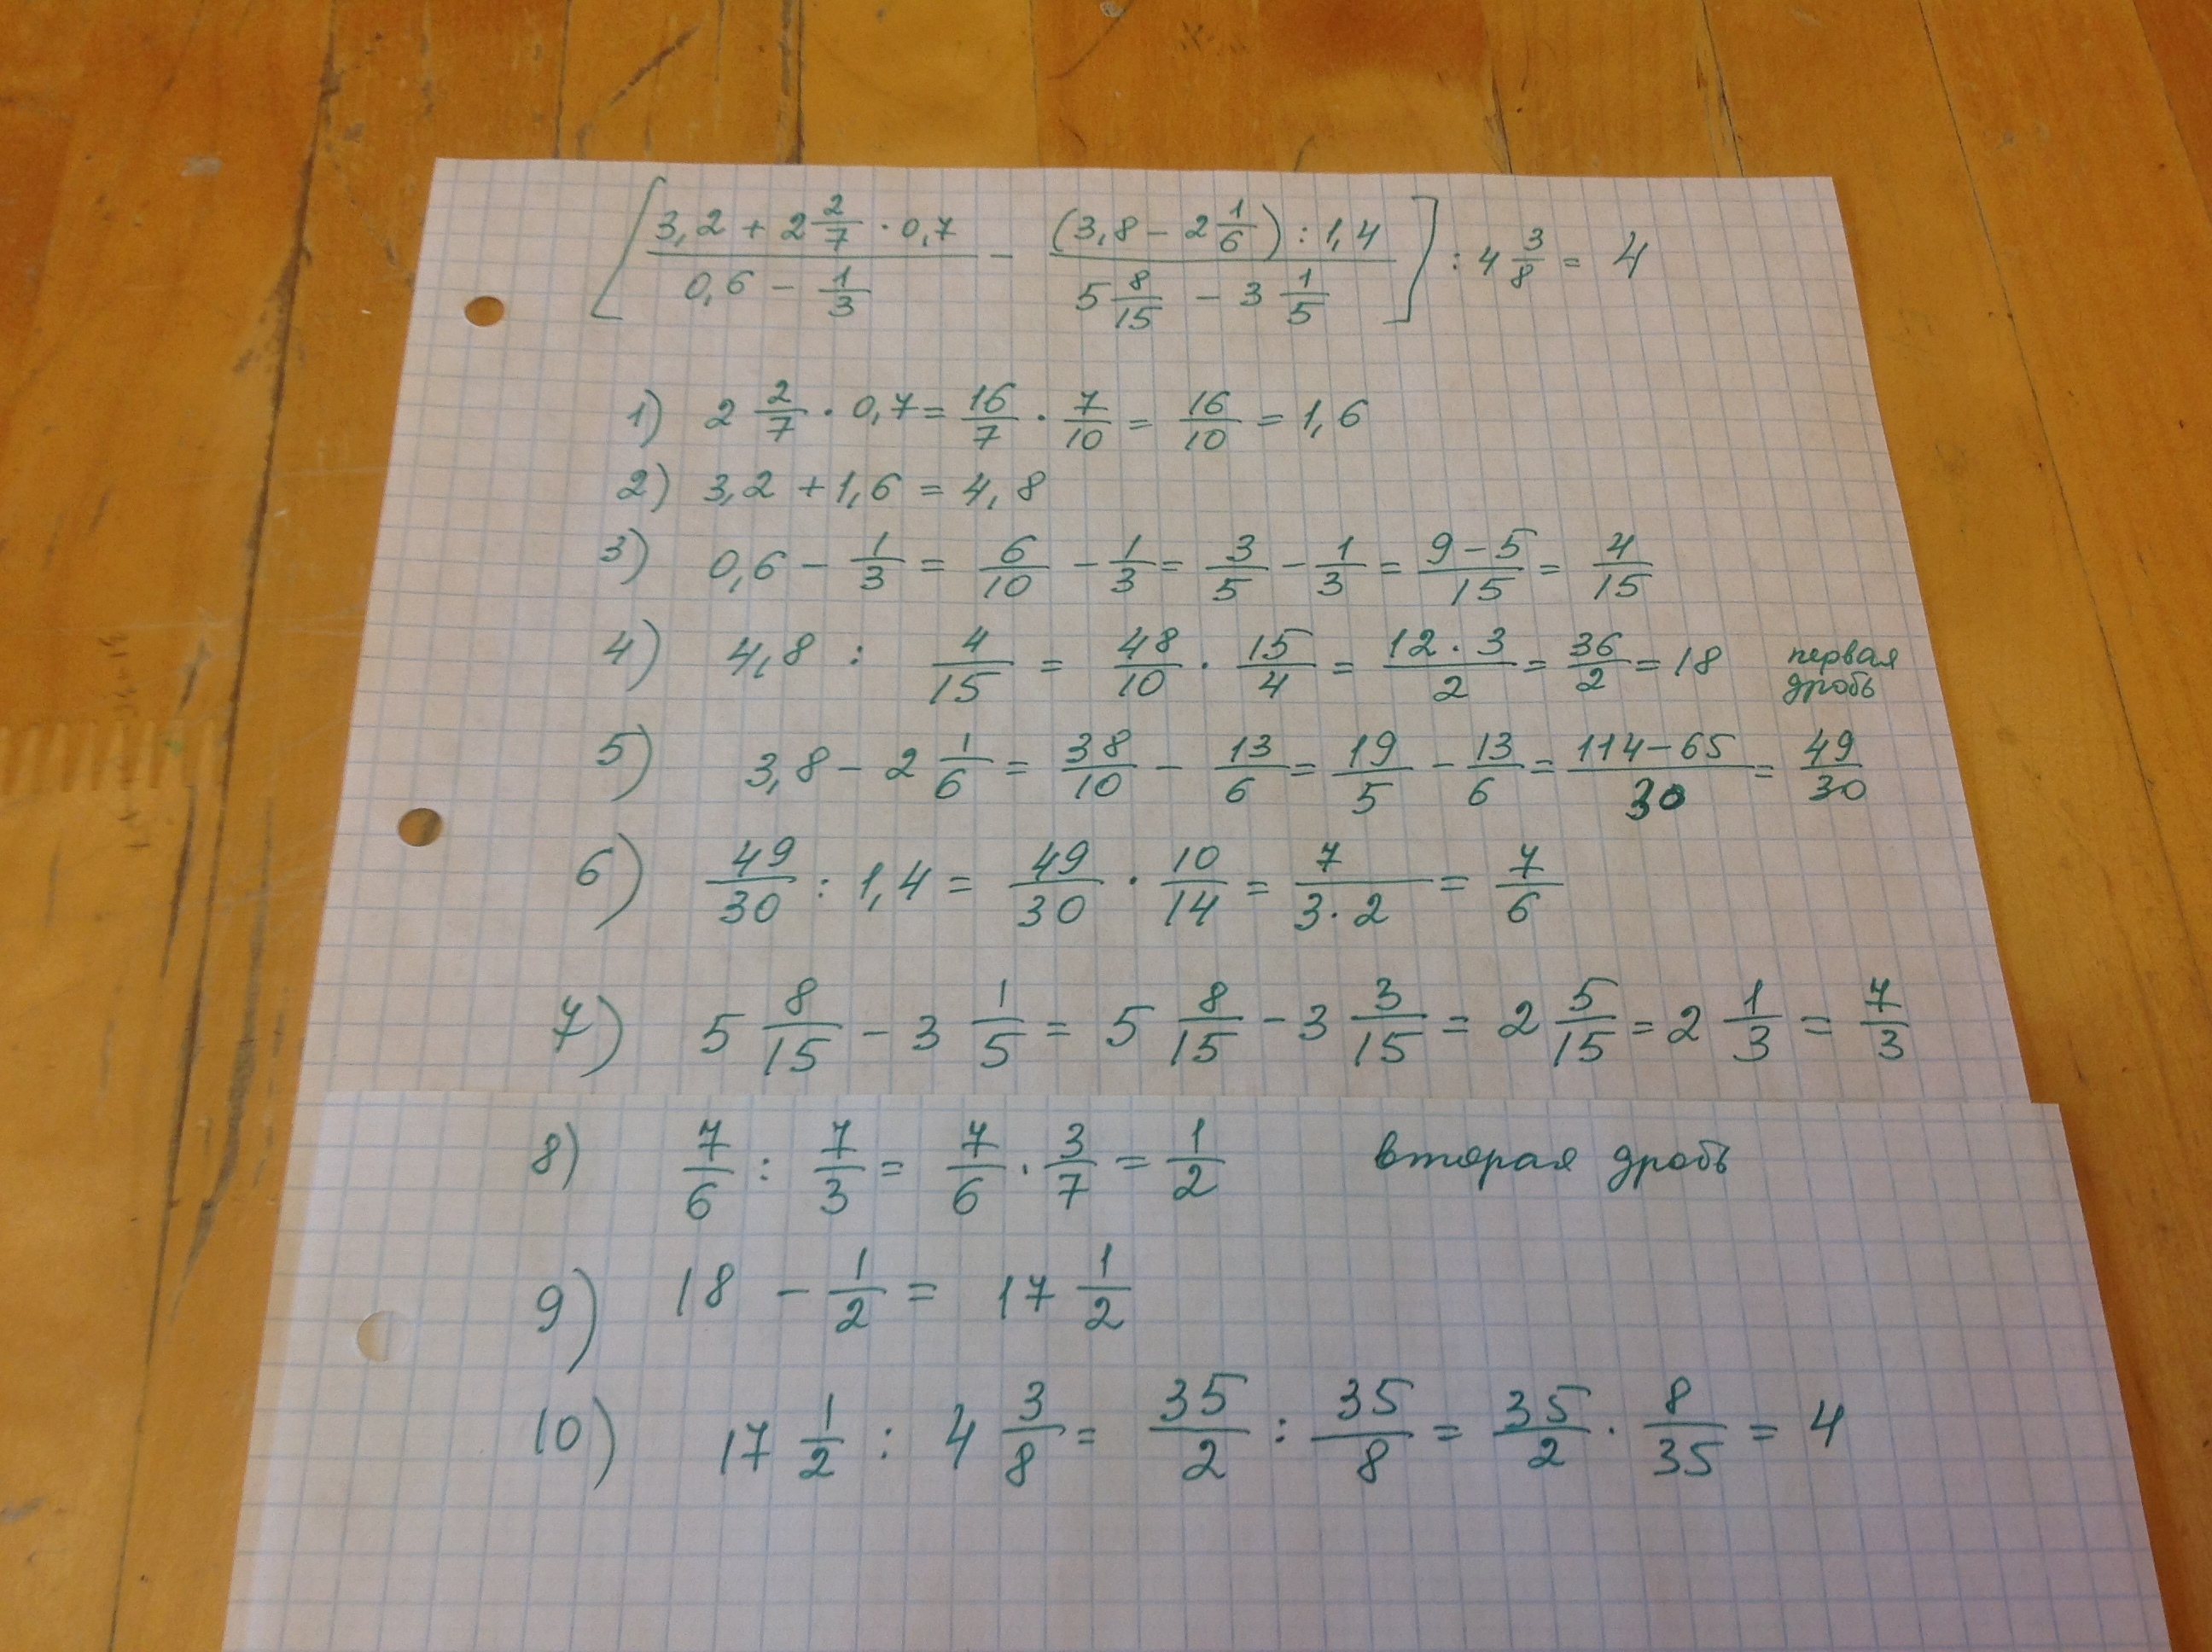 [(3,2 + 2 2/7 · 0,7)/(0,6 - 1/3) - ((3,8 - 2 1/6) : 1,4)/(5 8/15 - 3 1/5)] : 4 3/8 = 4
1) 2 2/7 · 0,7 = 16/7 · 7/10 = 16/10 = 1,6
2) 3,2 + 1,6 = 4,8
3) 0,6 - 1/3 = 6/10 - 1/3 = 3/5 - 1/3 = (9-5)/15 = 4/15
4) 4,8 : 4/15 = 48/10 · 15/4 = (12 · 3)/2 = 36/2 = 18 первая дробь
5) 3,8 - 2 1/6 = 38/10 - 13/6 = 19/5 - 13/6 = (114-65)/30 = 49/30
6) 49/30 : 1,4 = 49/30 · 10/14 = 7/(3·2) = 7/6
7) 5 8/15 - 3 1/5 = 5 8/15 - 3 3/15 = 2 5/15 = 2 1/3 = 7/3
8) 7/6 : 7/3 = 7/6 · 3/7 = 1/2 вторая дробь
9) 18 - 1/2 = 17 1/2
10) 17 1/2 : 4 3/8 = 35/2 : 35/8 = 35/2 · 8/35 = 4